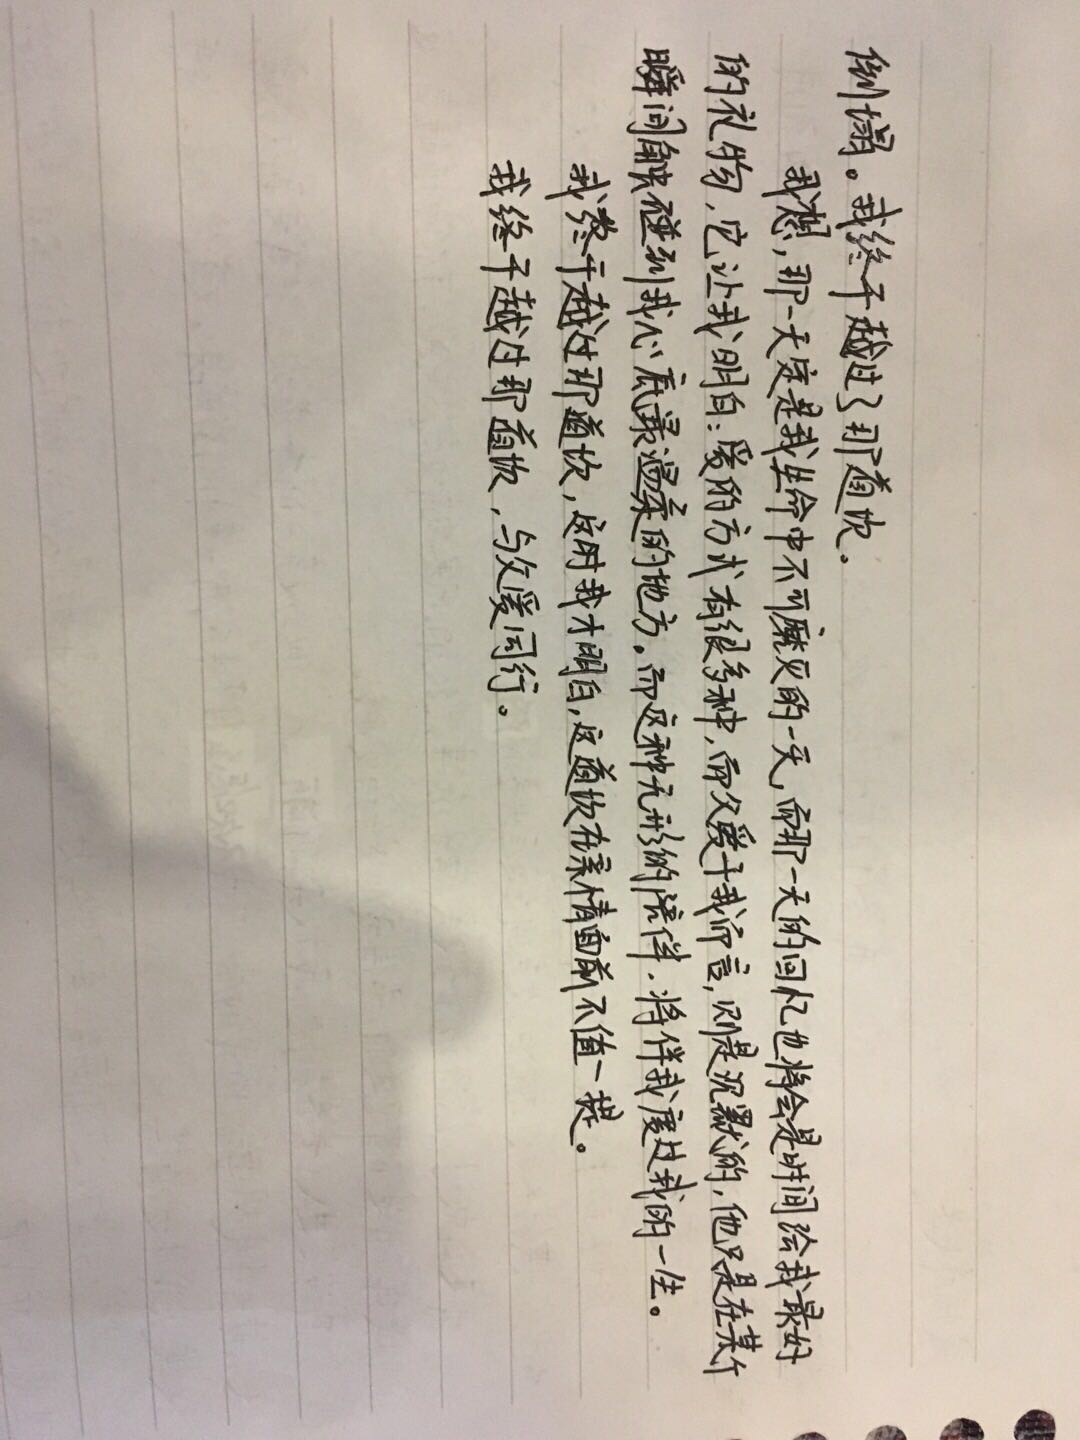 倒塌。我终于越过了那道坎。
我想，那一定是我生命中不可磨灭的一天，而那一天的回忆也将会是时间给我最好
的礼物，它让我明白：爱的方式有很多种，而父爱于我而言，则是沉默的，他只是在某个
瞬间触碰到我心底最温柔的地方。而这种无形的陪伴，将伴我度过我的一生。
我终于越过那道坎，这时我才明白，这道坎在亲情面前不值一提。
我终于越过那道坎，与父爱同行。